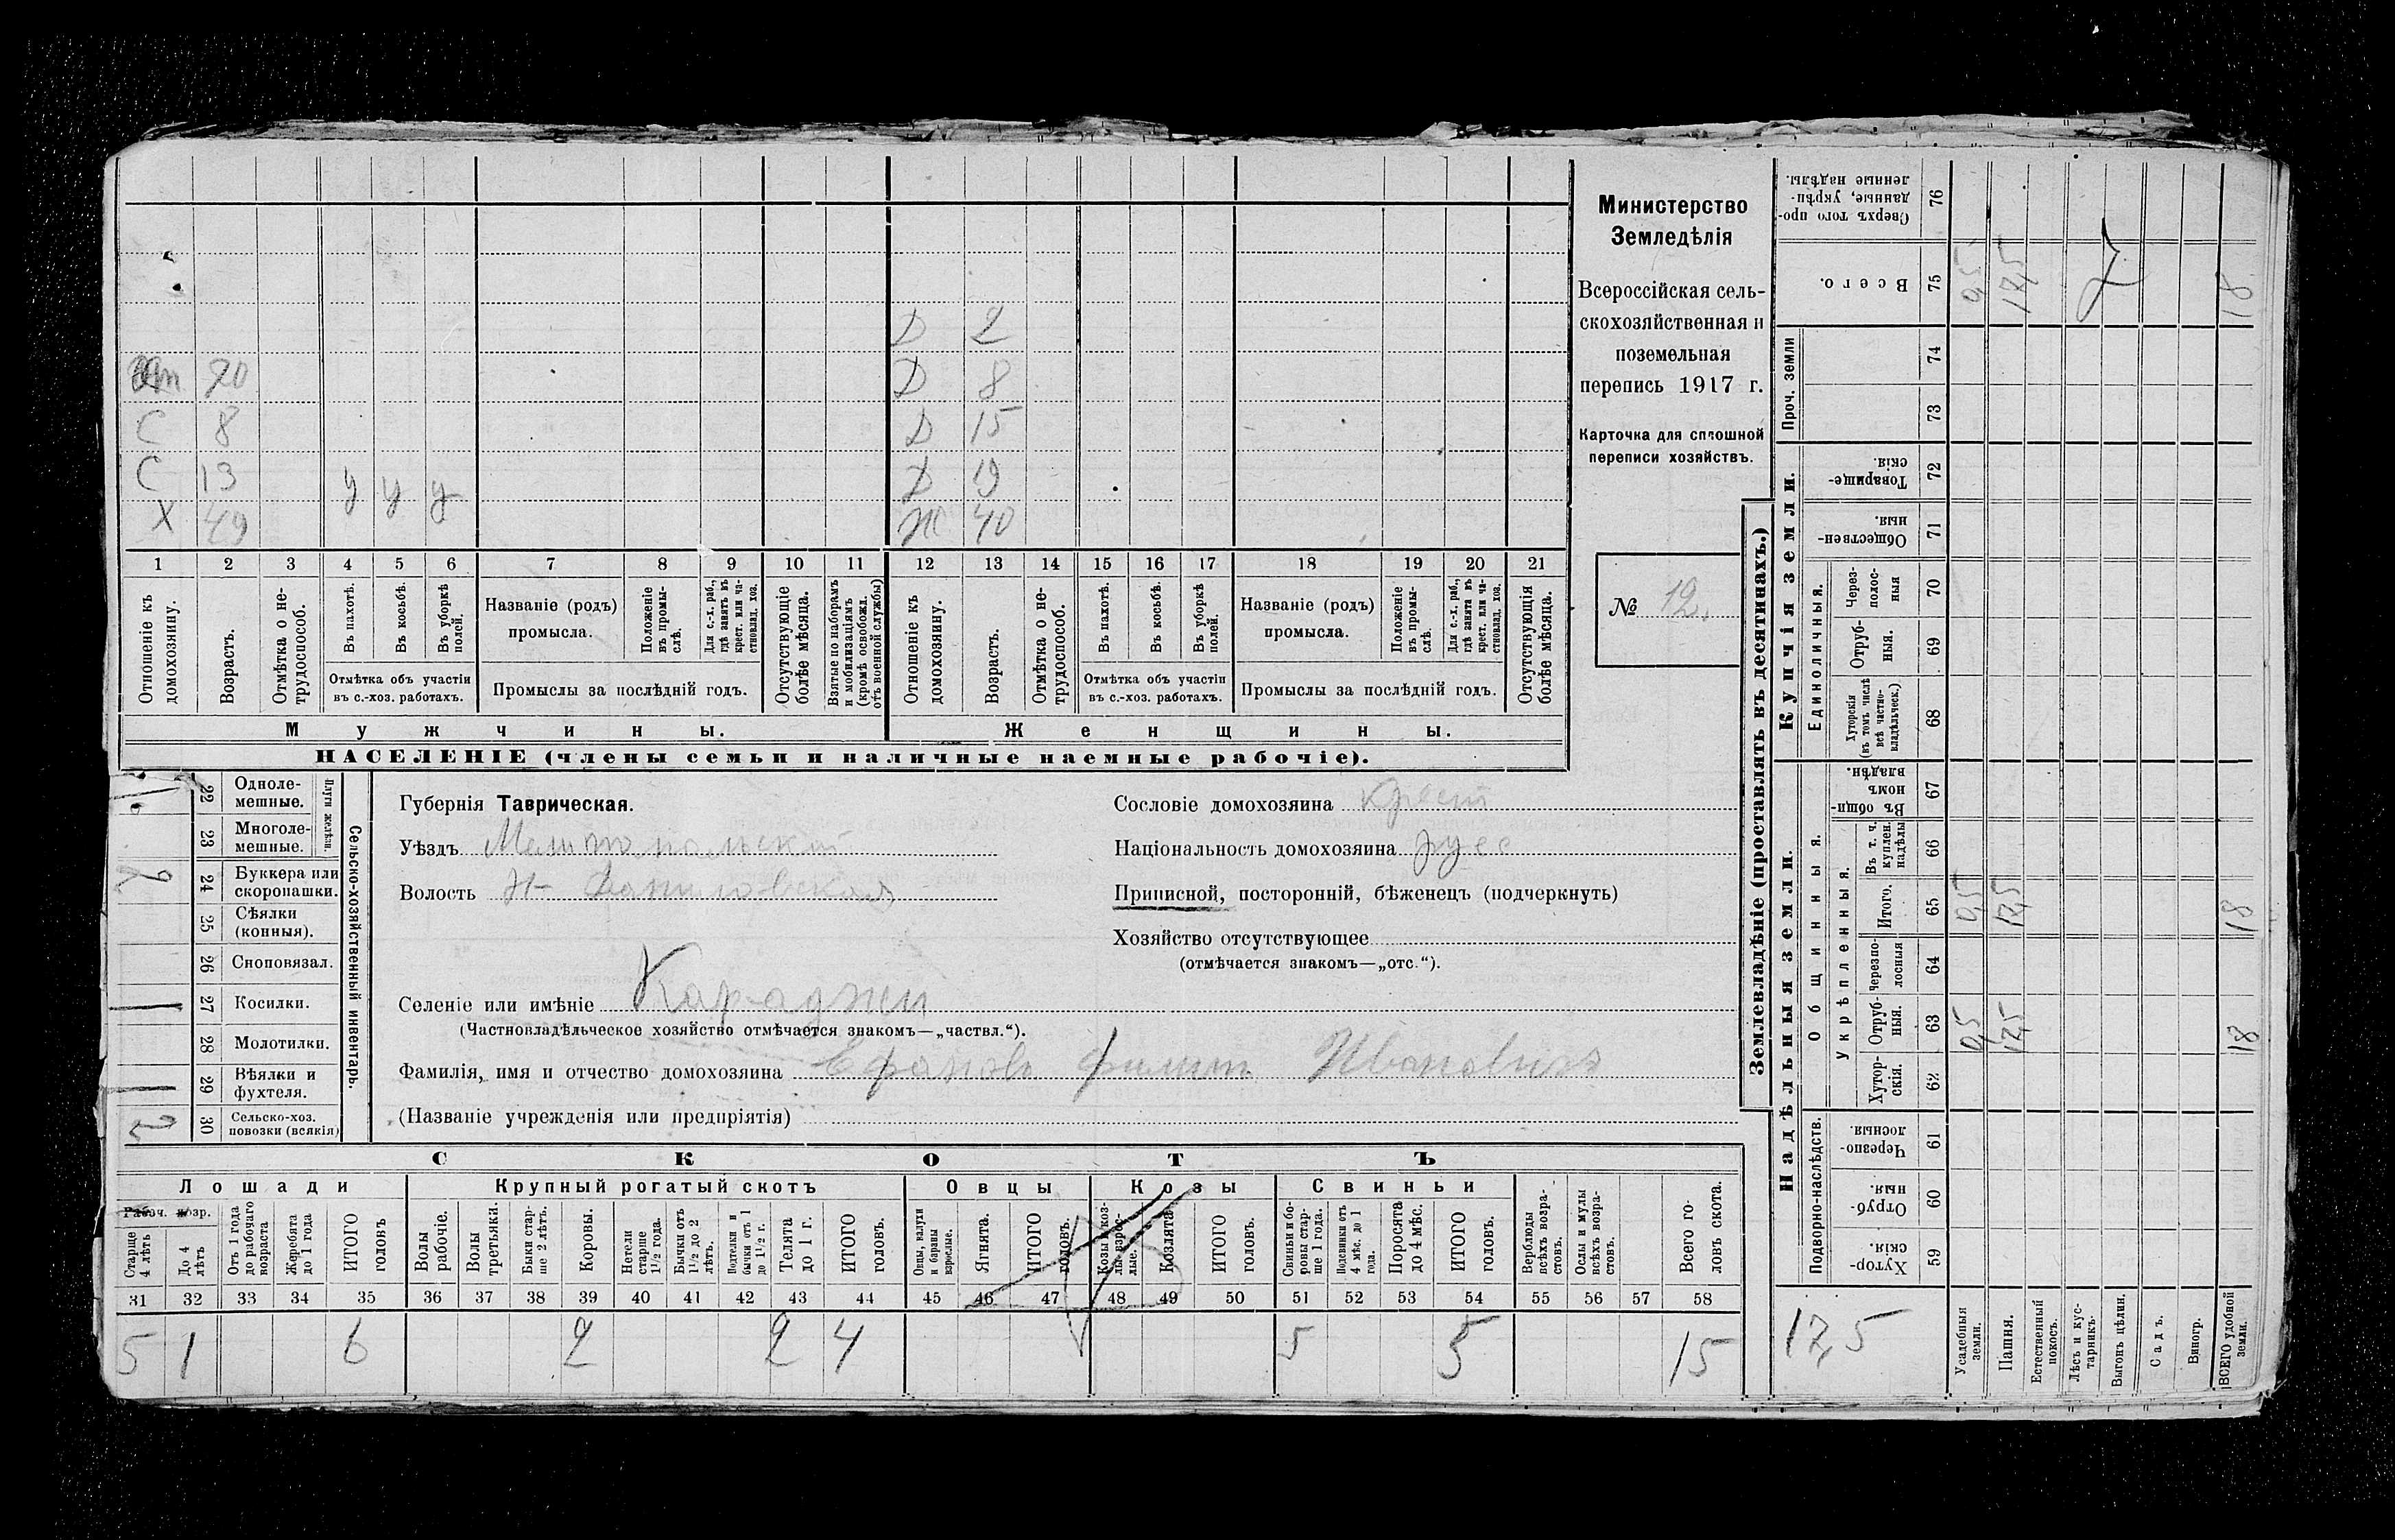 Министерство
Земледѣлія
Всероссійская сель-
скохозяйственная и
поземельная
перепись 1917 г.
Карточка для сплошной
переписи хозяйствъ.
№ 12.
Д 2
20 Д 8
С 8 Д 15
С 13 у у у Д 19
Х 49 Ж 40
1 2 3 4 5 6 7 8 9 10 11 12 13 14 15 16 17 18 19 20 21
Отношеніе къ домохозяину.
Возрастъ.
Отмѣтка о не-трудоспособ.
Въ пахотѣ.
Въ косьбѣ.
Въ уборкѣ полей.
Отмѣтка объ участіи
въ с.-хоз. работахъ.
Названіе (родъ)
промысла.
Положеніе въ промы-слѣ.
Для с.-х. раб., гдѣ занятъ въ крест. или ча-стновлад. хоз.
Промыслы за послѣдній годъ.
Отсутствующіе болѣе мѣсяца.
Взятые по наборамъ и мобилизаціямъ (кромѣ освобожд. отъ военной службы)
Отношеніе къ домохозяину.
Возрастъ.
Отмѣтка о не-трудоспособ.
Въ пахотѣ.
Въ косьбѣ.
Въ уборкѣ полей.
Отмѣтка объ участіи
въ с.-хоз. работахъ.
Названіе (родъ)
промысла.
Положеніе въ промы-слѣ.
Для с.-х. раб., гдѣ занята въ крест. или ча-стновлад. хоз.
Промыслы за послѣдній годъ.
Отсутствующія болѣе мѣсяца.
Мужчины. Женщины.
НАСЕЛЕНІЕ (члены семьи и наличные наемные рабочіе).
Сельско-хозяйственный инвентарь.
Плуги желѣзн.
22 Одноле-мешные.
23 Многоле-мешные.
24 Буккера или скоропашки.
25 Сѣялки (конныя).
26 Сноповязал.
27 Косилки.
28 Молотилки.
29 Вѣялки и фухтеля.
30 Сельско-хоз. повозки (всякія)
Губернія Таврическая.
Уѣздъ Мелитопольскій
Волость Н- Даниловская
Селеніе или имѣніе Караджи
(Частновладѣльческое хозяйство отмѣчается знакомъ—„частвл.“).
Фамилія, имя и отчество домохозяина Ефановъ Филипъ Ивановичъ
(Названіе учрежденія или предпріятія)
Сословіе домохозяина крест
Національность домохозяина русс
Приписной, посторонній, бѣженецъ (подчеркнуть)
Хозяйство отсутствующее
(отмѣчается знакомъ—„отс.“).
СКОТЪ
Лошади Крупный рогатый скотъ Овцы Козы Свиньи
Рабоч. возр.
Старше 4 лѣтъ
До 4 лѣтъ
Отъ 1 года до рабочаго возраста
Жеребята до 1 года
ИТОГО головъ
Волы рабочіе.
Волы третьяки.
Быки стар-ше 2 лѣтъ.
Коровы.
Нетели старше 1½ года.
Бычки отъ 1½ до 2 лѣтъ.
Подтелки и бычки отъ 1 до 1½ г.
Телята до 1 г.
ИТОГО головъ.
Овцы, валухи и бараны взрослые.
Ягнята.
ИТОГО головъ.
Козы и коз-лы взрос-лые.
Козлята
ИТОГО головъ.
Свиньи и бо-ровы стар-ше 1 года.
Подсвинки отъ 4 мѣс. до 1 года.
Поросята до 4 мѣс.
ИТОГО головъ.
Верблюды всѣхъ возра-стовъ.
Ослы и мулы всѣхъ возра-стовъ.
Всего го-ловъ скота.
31 32 33 34 35 36 37 38 39 40 41 42 43 44 45 46 47 48 49 50 51 52 53 54 55 56 57 58
5 1 6 2 2 4 5 5 15
Землевладѣніе (проставлять въ десятинахъ.)
Надѣльныя земли. Купчія земли. Проч. земли
Подворно-наслѣдств. Общинныя. Укрѣпленныя. Единоличныя.
Хутор-скія. 59
Отруб-ныя. 60
Черезпо-лосныя. 61
Хутор-скія. 62
Отруб-ныя. 63 0,5 17,5 18
Черезпо-лосныя 64
Итого. 65 0,5 17,5 18
Въ т. ч. куплен. надѣлы 66
Въ общи-номъ владѣн. 67
Хуторскія (въ томъ числѣ всѣ частно-владѣльческ.) 68
Отруб-ныя. 69
Через-полос-ныя 70
Обществен-ныя. 71
Товарище-скія. 72
73
74
Всего. 75 0,5 17,5 18
Сверхъ того про-данные, укрѣп-ленные надѣлы. 76
17,5
Усадебныя земли.
Пашня.
Естественный покосъ.
Лѣсъ и кус-тарникъ.
Выгонъ цѣлин.
Садъ.
Виногр.
ВСЕГО удобной земли.